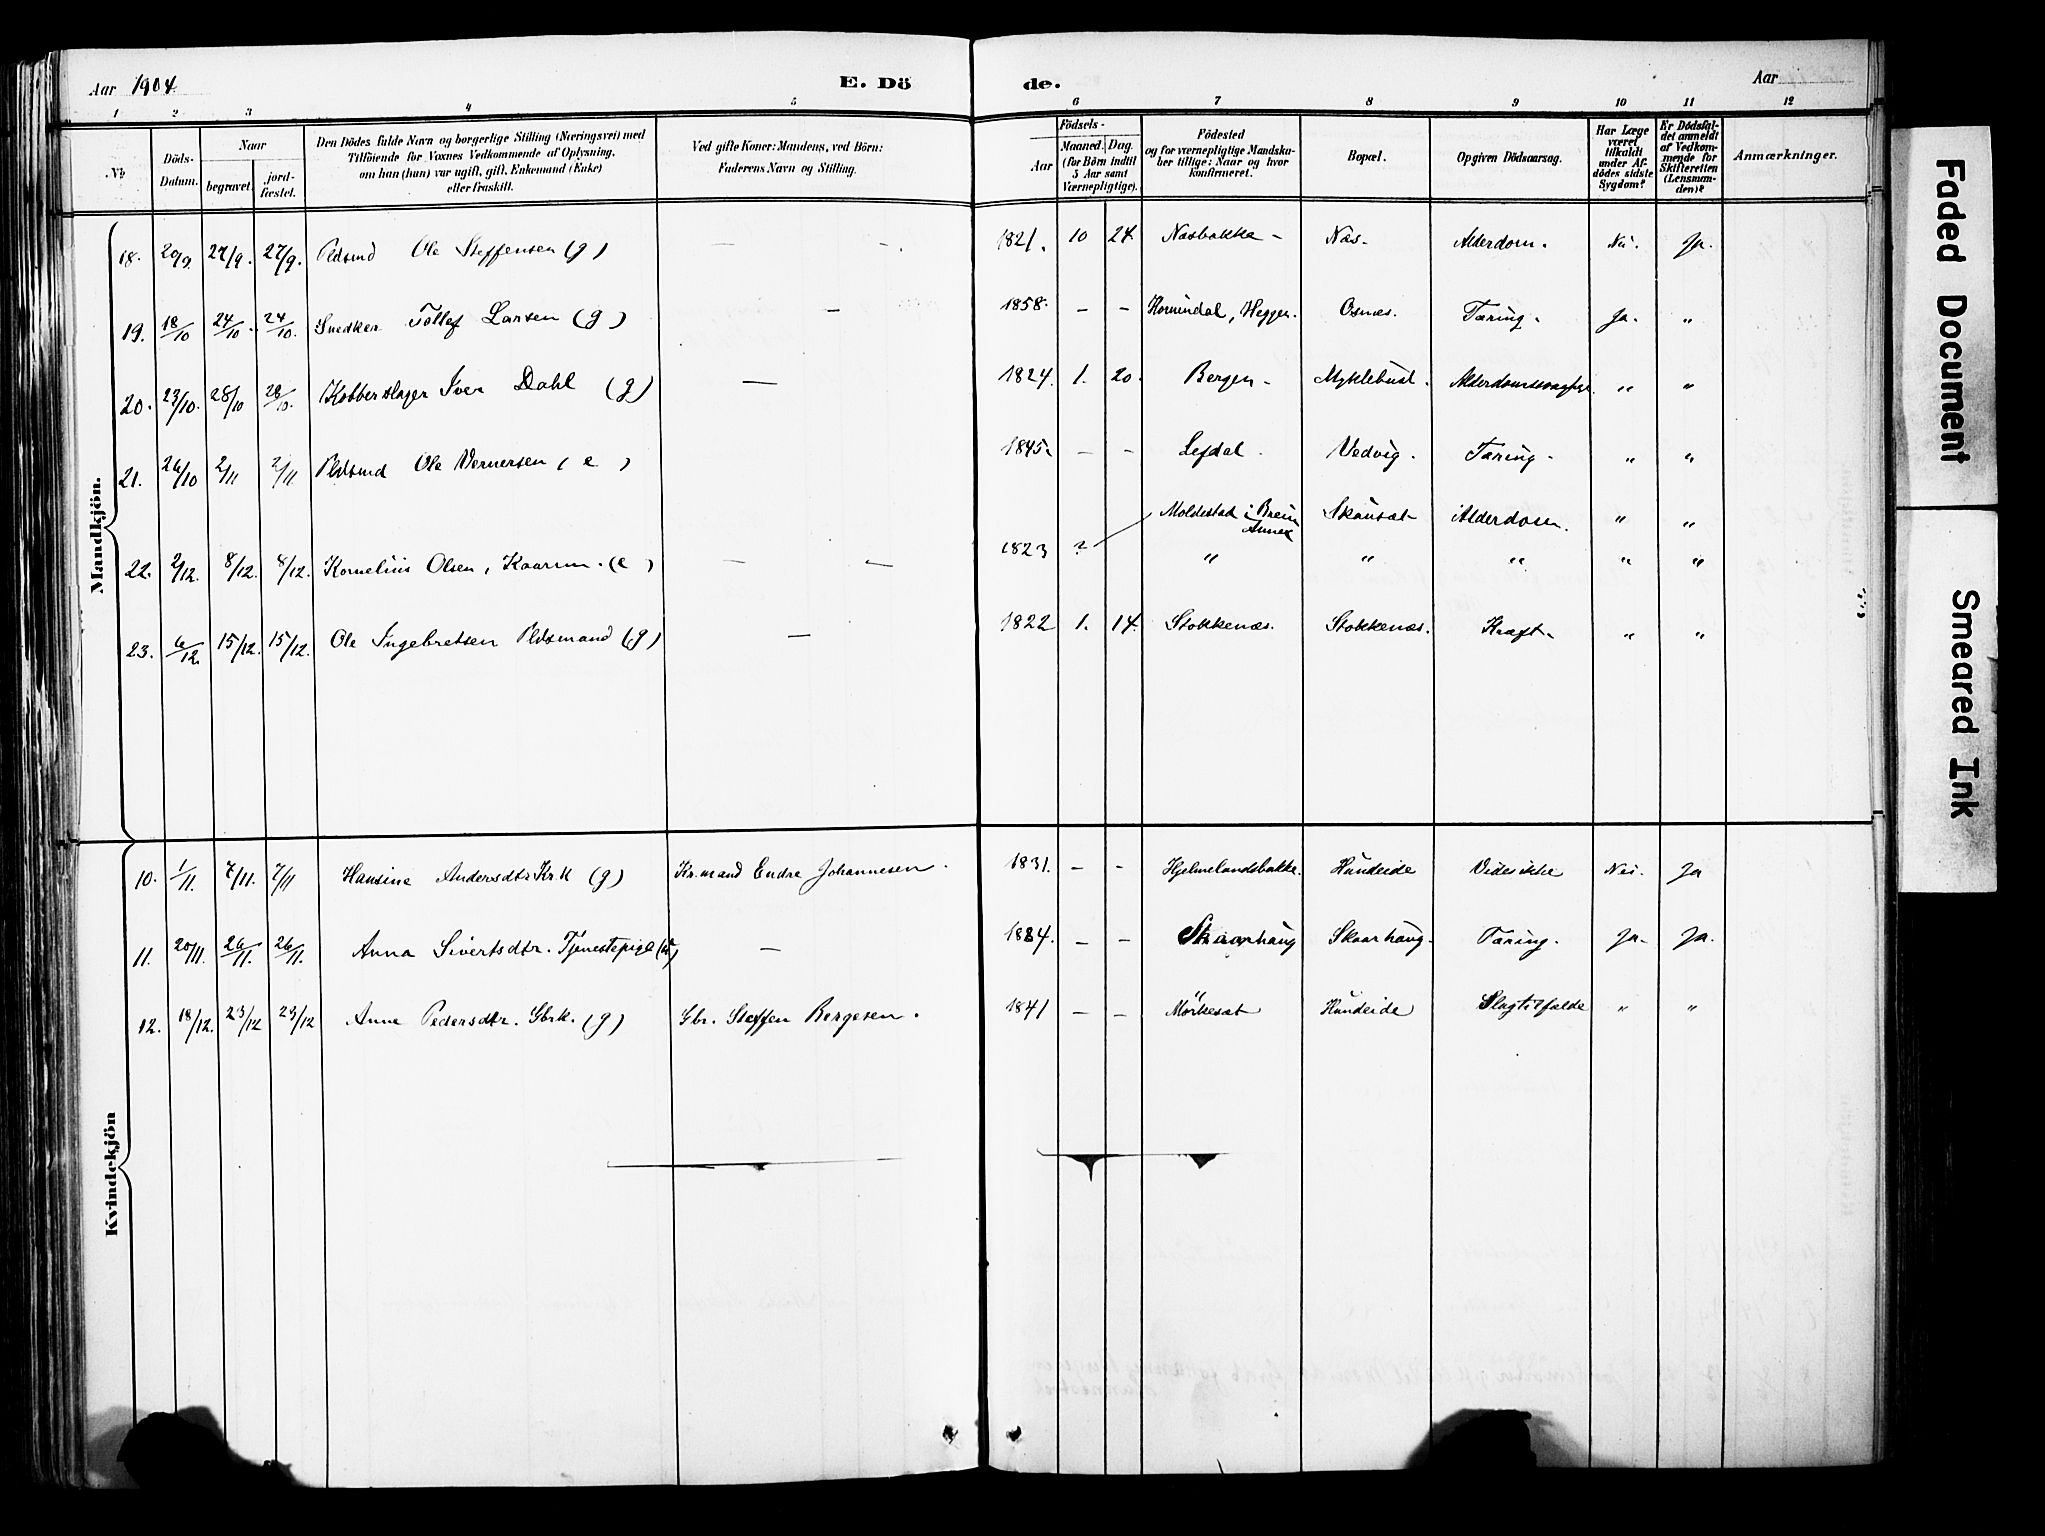 Aar 1904
E. Döde.
Aar
1 2 3 4 5 6 7 8 9 10 11 12
No
Döds-Datum.
Naar
begravet.
jord-fæstet.
Den Dödes fulde Navn og borgerlige Stilling (Næringsvei) med
Tilföiende for Voxnes Vedkommende af Oplysning,
om han (hun) var ugift, gift, Enkemand (Enke)
eller fraskilt.
Ved gifte Koner: Mandens, ved Börn:
Faderens Navn og Stilling.
Födsels-
Aar
Maaned. Dag.
(for Börn indtil
5 Aar samt
Værnepligtige).
Födested
og for værnepligtige Mandska-
ber tillige: Naar og hvor
konfirmeret.
Bopæl.
Opgiven Dödsaarsag.
Har Læge
været
tilkaldt
under Af-
dödes sidste
Sygdom?
Er Dödsfal-
det anmeldt
af Vedkom-
mende for
Skifteretten
(Lensman-
den)?
Anmærkninger.
Mandkjön.
18. 20/9. 27/9. 27/9. Pldsmd Ole Steffensen (g) — — 1821. 10 24. Næsbakke - Næs. Alderdom. Nei. Ja.
19. 18/10 24/10. 24/10. Snedker Tollef Larsen (g) — 1858. — — Hornindal, Heggen. Osnæs. Tæring. Ja. "
20. 23/10. 28/10 28/10. Kobberslager Iver Dahl (g) — 1824. 1. 20. Bergen - Myklebust. " "
21. 26/10 2/11 2/11. Pldsmd Ole Vernersen (e) 1845. — — Lefdal. Vedvig. Tæring. " "
Moldestad i Breim Annex Skausæt Alderdom. " "
22. 2/12. 8/12. 8/12. Kornelius Olsen, Kaarm. (e) — — 1823 ? " " " " "
23. 6/12. 15/12. 15/12. Ole Ingebretsen Pldsmand (g) — 1822 1. 14. Stokkenæs. Stokkenæs. Kræft. " "
Kvindekjön
10. 1/11. 7/11. 7/11 Hansine Andersdtr. Kr.k (g) Kr.mand Endre Johannesen. 1831. — — Hjelmelandsbakke. Hundeide Vides ikke Nei. Ja
11. 20/11. 26/11. 26/11. Anna Sivertsdtr. Tjenestepige (u) — 1884. — — Skaarhaug Skaarhaug. Tæring. Ja. Ja.
12. 18/12. 23/12 23/12 Anne Pedersdtr. Gbrk. (g) Gbr. Steffen Bergesen. 1841 — — Mörkesæt Hundeide Slagtilfælde " "
Faded Document
Smeared Ink